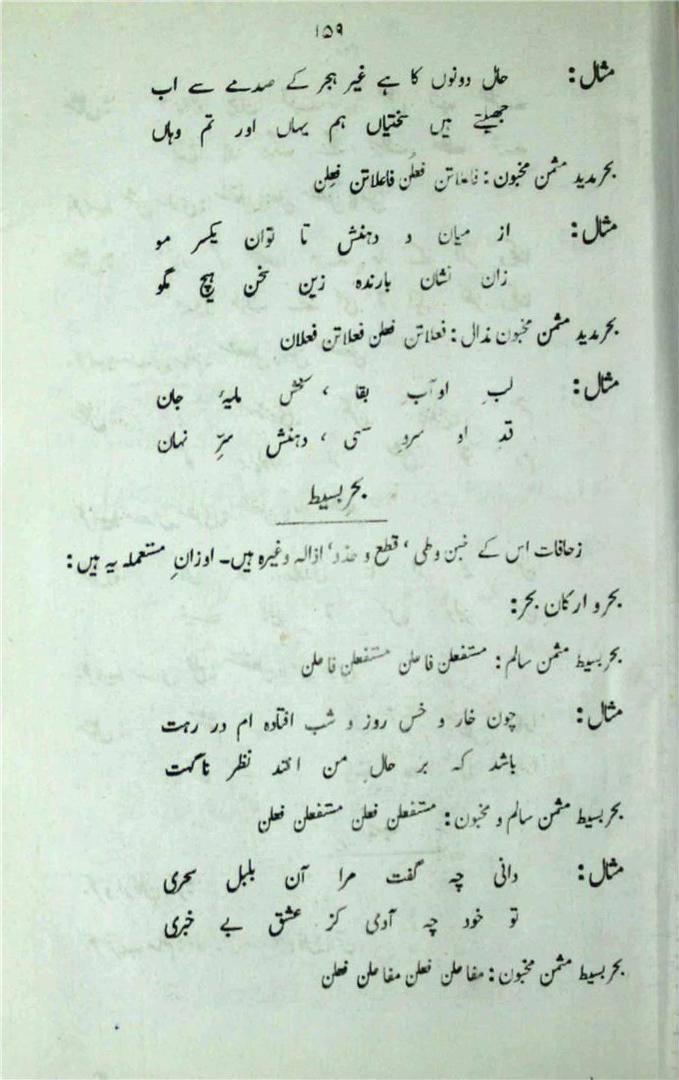 ۱۵۹
مثال: حال دونوں کا ہے غیر ہجر کے صدمے سے اب
جھیلتے ہیں سختیاں ہم یہاں اور تم وہاں
بحر مدید مثمن مخبون: فاعلاتن فعلُن فاعلاتن فعِلن
مثال: از میان و دہنش تا توان یکسر مو
زان نشان بارندہ زین سخن ہیچ مگو
بحر مدید مثمن مخبون مذال: فعلاتن فعلن فعلاتن فعلان
مثال: لبِ او آبِ بقا، سخنش مایۂ جان
قدِ او سروِ سہی، دہنش سرِّ نہان
بحرِ بسیط
زحافات اس کے خبن و طی، قطع و حذذ، اذالہ وغیرہ ہیں۔ اوزانِ مستعملہ یہ ہیں:
بحر و ارکان بحر:
بحر بسیط مثمن سالم: مستفعلن فاعلن مستفعلن فاعلن
مثال: چون خار و خس روز و شب افتادہ ام در رہت
باشد کہ بر حالِ من افتد نظر ناگہت
بحر بسیط مثمن سالم و مخبون: مستفعلن فعلن مستفعلن فعلن
مثال: دانی چہ گفت مرا آن بلبل سحری
تو خود چہ آدمی کز عشق بے خبری
بحر بسیط مثمن مخبون: مفاعلن فعلن مفاعلن فعلن